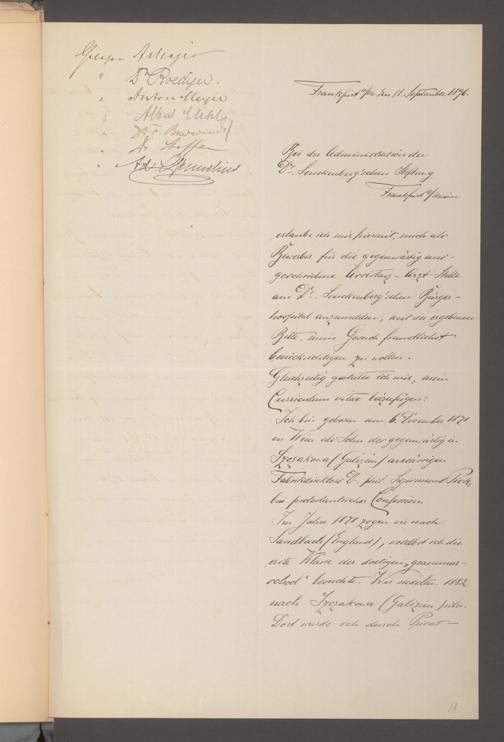 " Dr Roediger.
" Anton Meyer
" Albert
Frankfurt a/M. den 11. September 1896.
Bei der Administration der
Dr. Senckenberg'schen Stiftung
Frankfurt a/Main
erlaube ich mir hiermit, mich als
Bewerber für die gegenwärtig aus-
geschriebene Assistenz-Arzt-Stelle
am Dr. Senckenberg'schen Bürger-
hospital anzumelden, mit der ergebenen
Bitte, mein Gesuch freundlichst
berücksichtigen zu wollen.
Gleichzeitig gestatte ich mir, mein
Curriculum vitae beizufügen:
Ich bin geboren am 6. December 1871
in Wien als Sohn des gegenwärtig in
Szczakowa (Galizien) ansässigen
Fabrikdirektors Dr. phil. Sigismund
bin protestantischer Confession.
Im Jahre 1878 zogen wir nach
Sandbach (England), woselbst ich die
erste Klasse der dortigen "grammar-
school" besuchte. Wir siedelten 1882
nach Szczakowa (Galizien) über.
Dort wurde ich durch Privat-